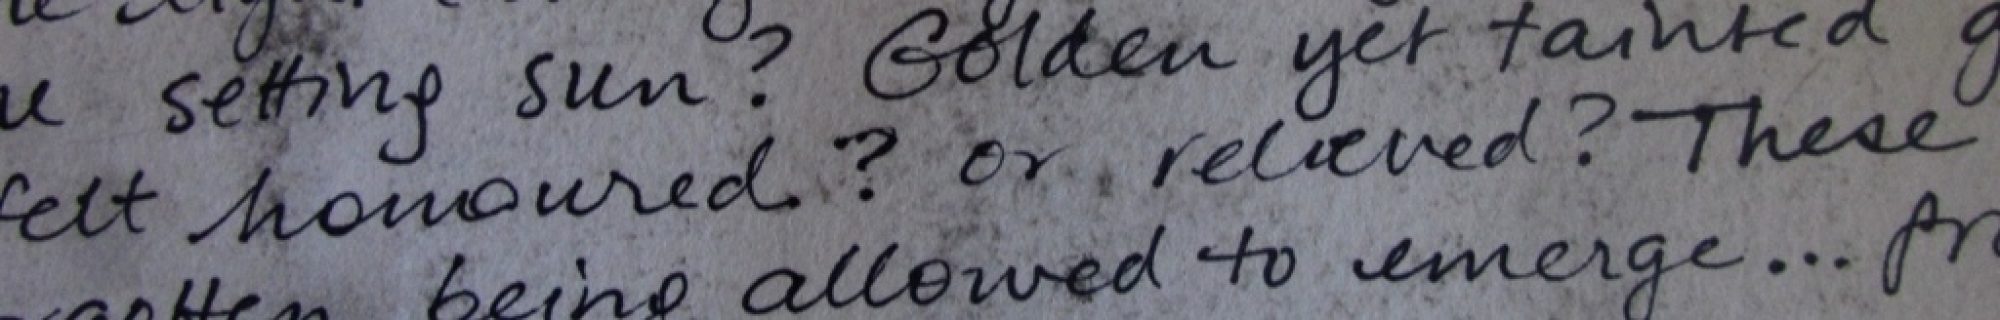 setting sun? Golden yet tainted
felt honoured.? or relieved? These
being allowed to emerge...